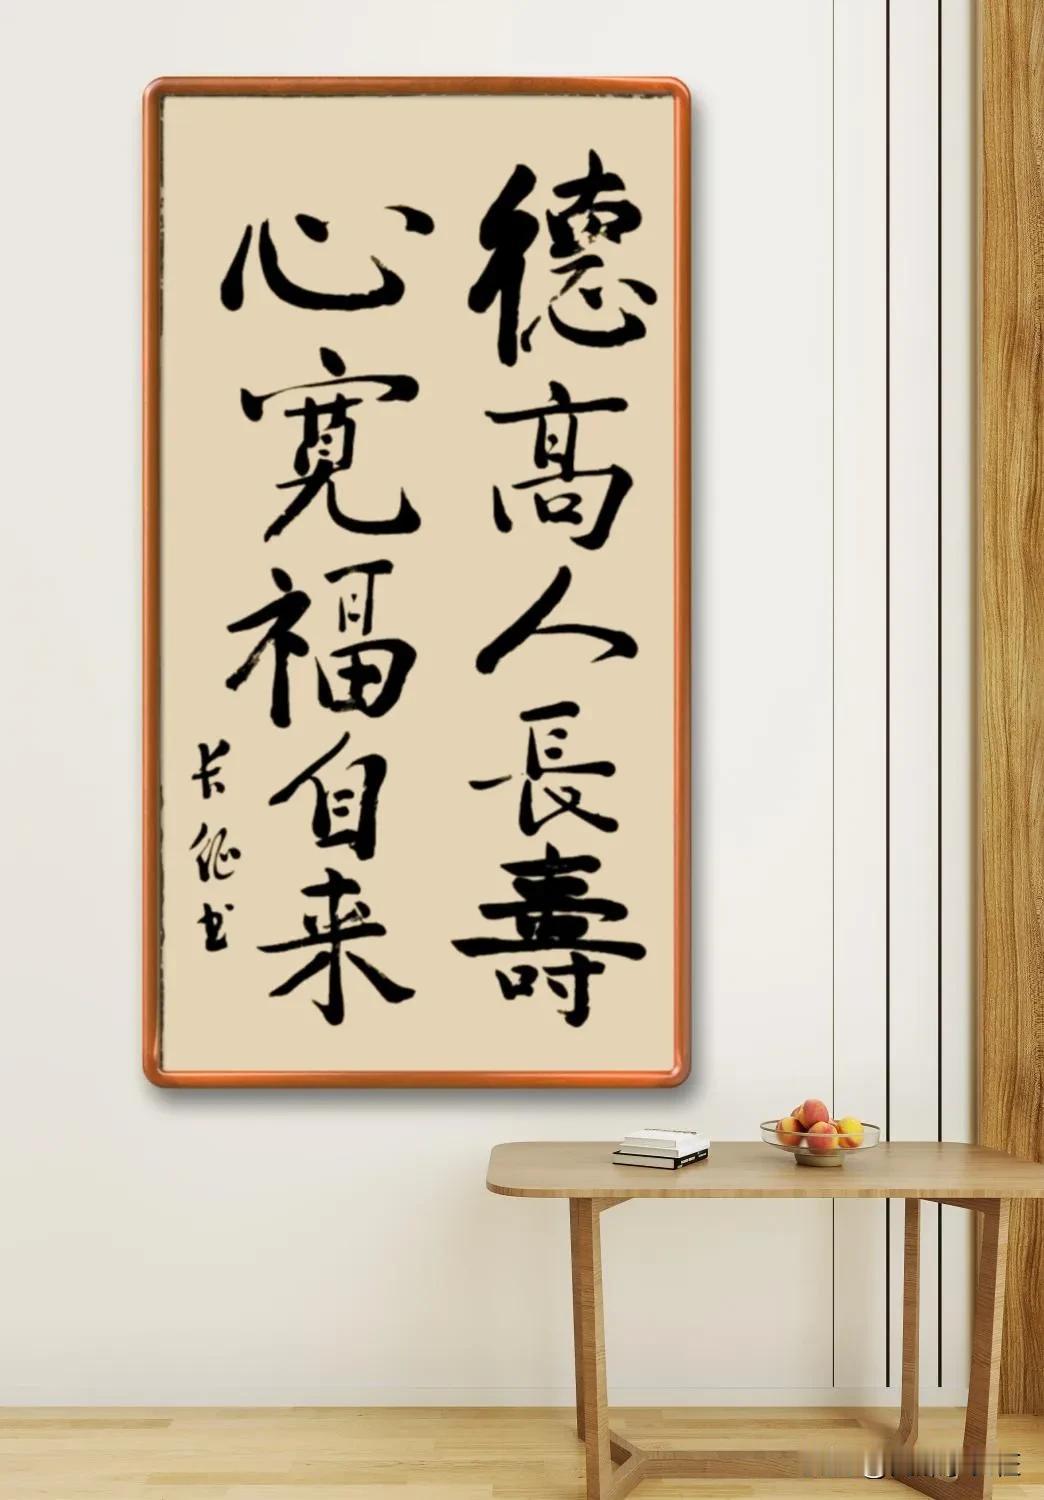 德高人長壽
心寬福自来
长征书